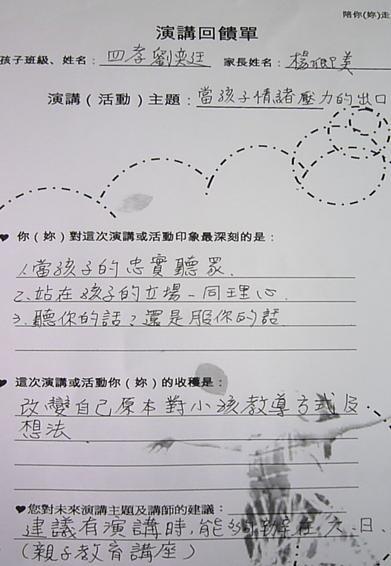 陪你(妳)走
演講回饋單
孩子班級、姓名： 四孝劉奕廷 家長姓名： 楊
美
演講(活動)主題： 當孩子情緒壓力的出口
♥ 你(妳)對這次演講或活動印象最深刻的是：
1.當孩子的忠實聽眾.
2.站在孩子的立場–同理心.
3.聽你的話？還是服你的話
♥ 這次演講或活動你(妳)的收穫是：
改變自己原本對小孩教導方式及
想法
♥您對未來演講主題及講師的建議：
建議有演講時,能夠辦在六、日
(親子教育講座)